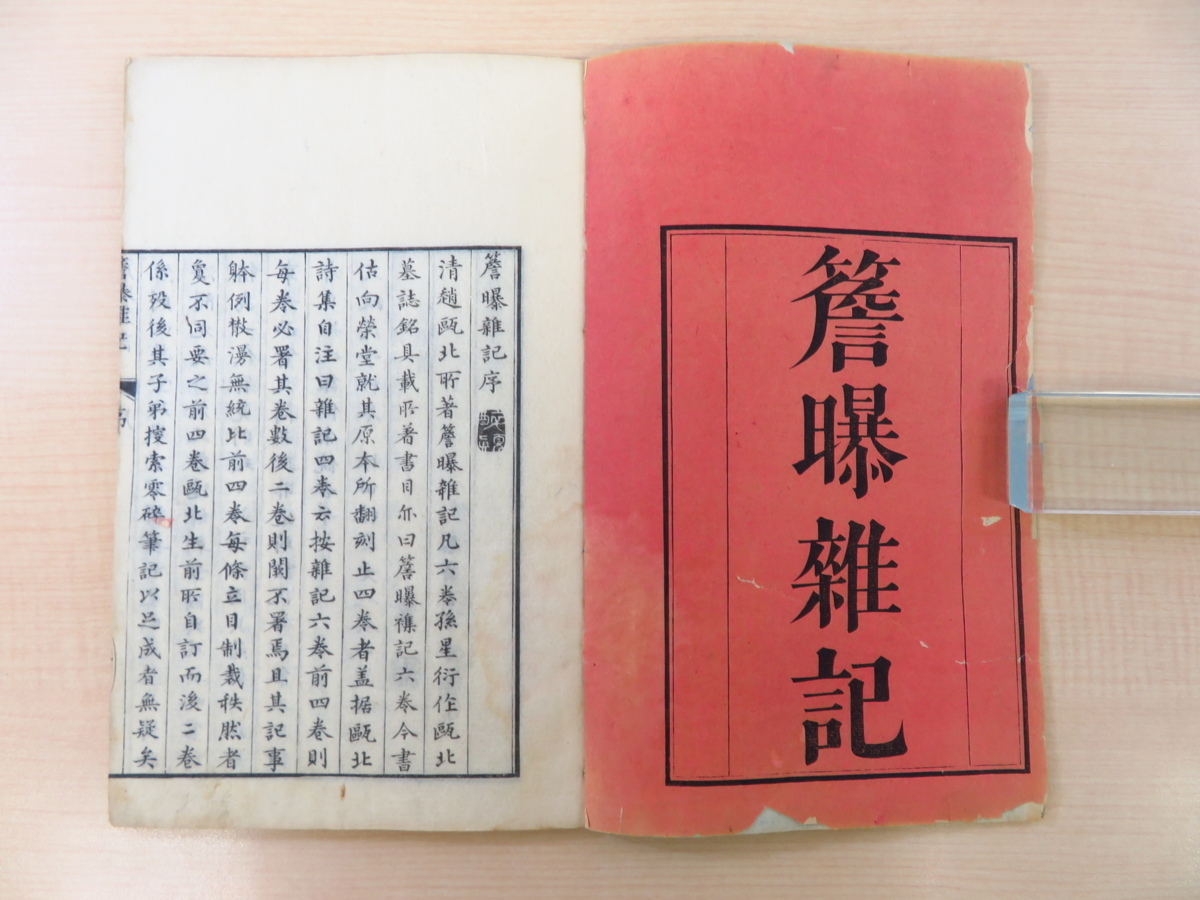 簷曝雜記
簷曝雜記序
清趙甌北所著簷曝雜記凡六卷孫星衍作甌北
墓誌銘具載所著書目亦曰簷曝襍記六卷今書
估向榮堂就其原本所翻刻止四卷者盖据甌北
詩集自注曰雜記四卷云按雜記六卷前四卷則
每卷必署其卷數後二卷則闕不署焉且其記事
躰例散漫無統比前四卷每條立目制裁秩然者
敻不同要之前四卷甌北生前所自訂而後二卷
係歿後其子弟搜索零碎筆記以足成者無疑矣